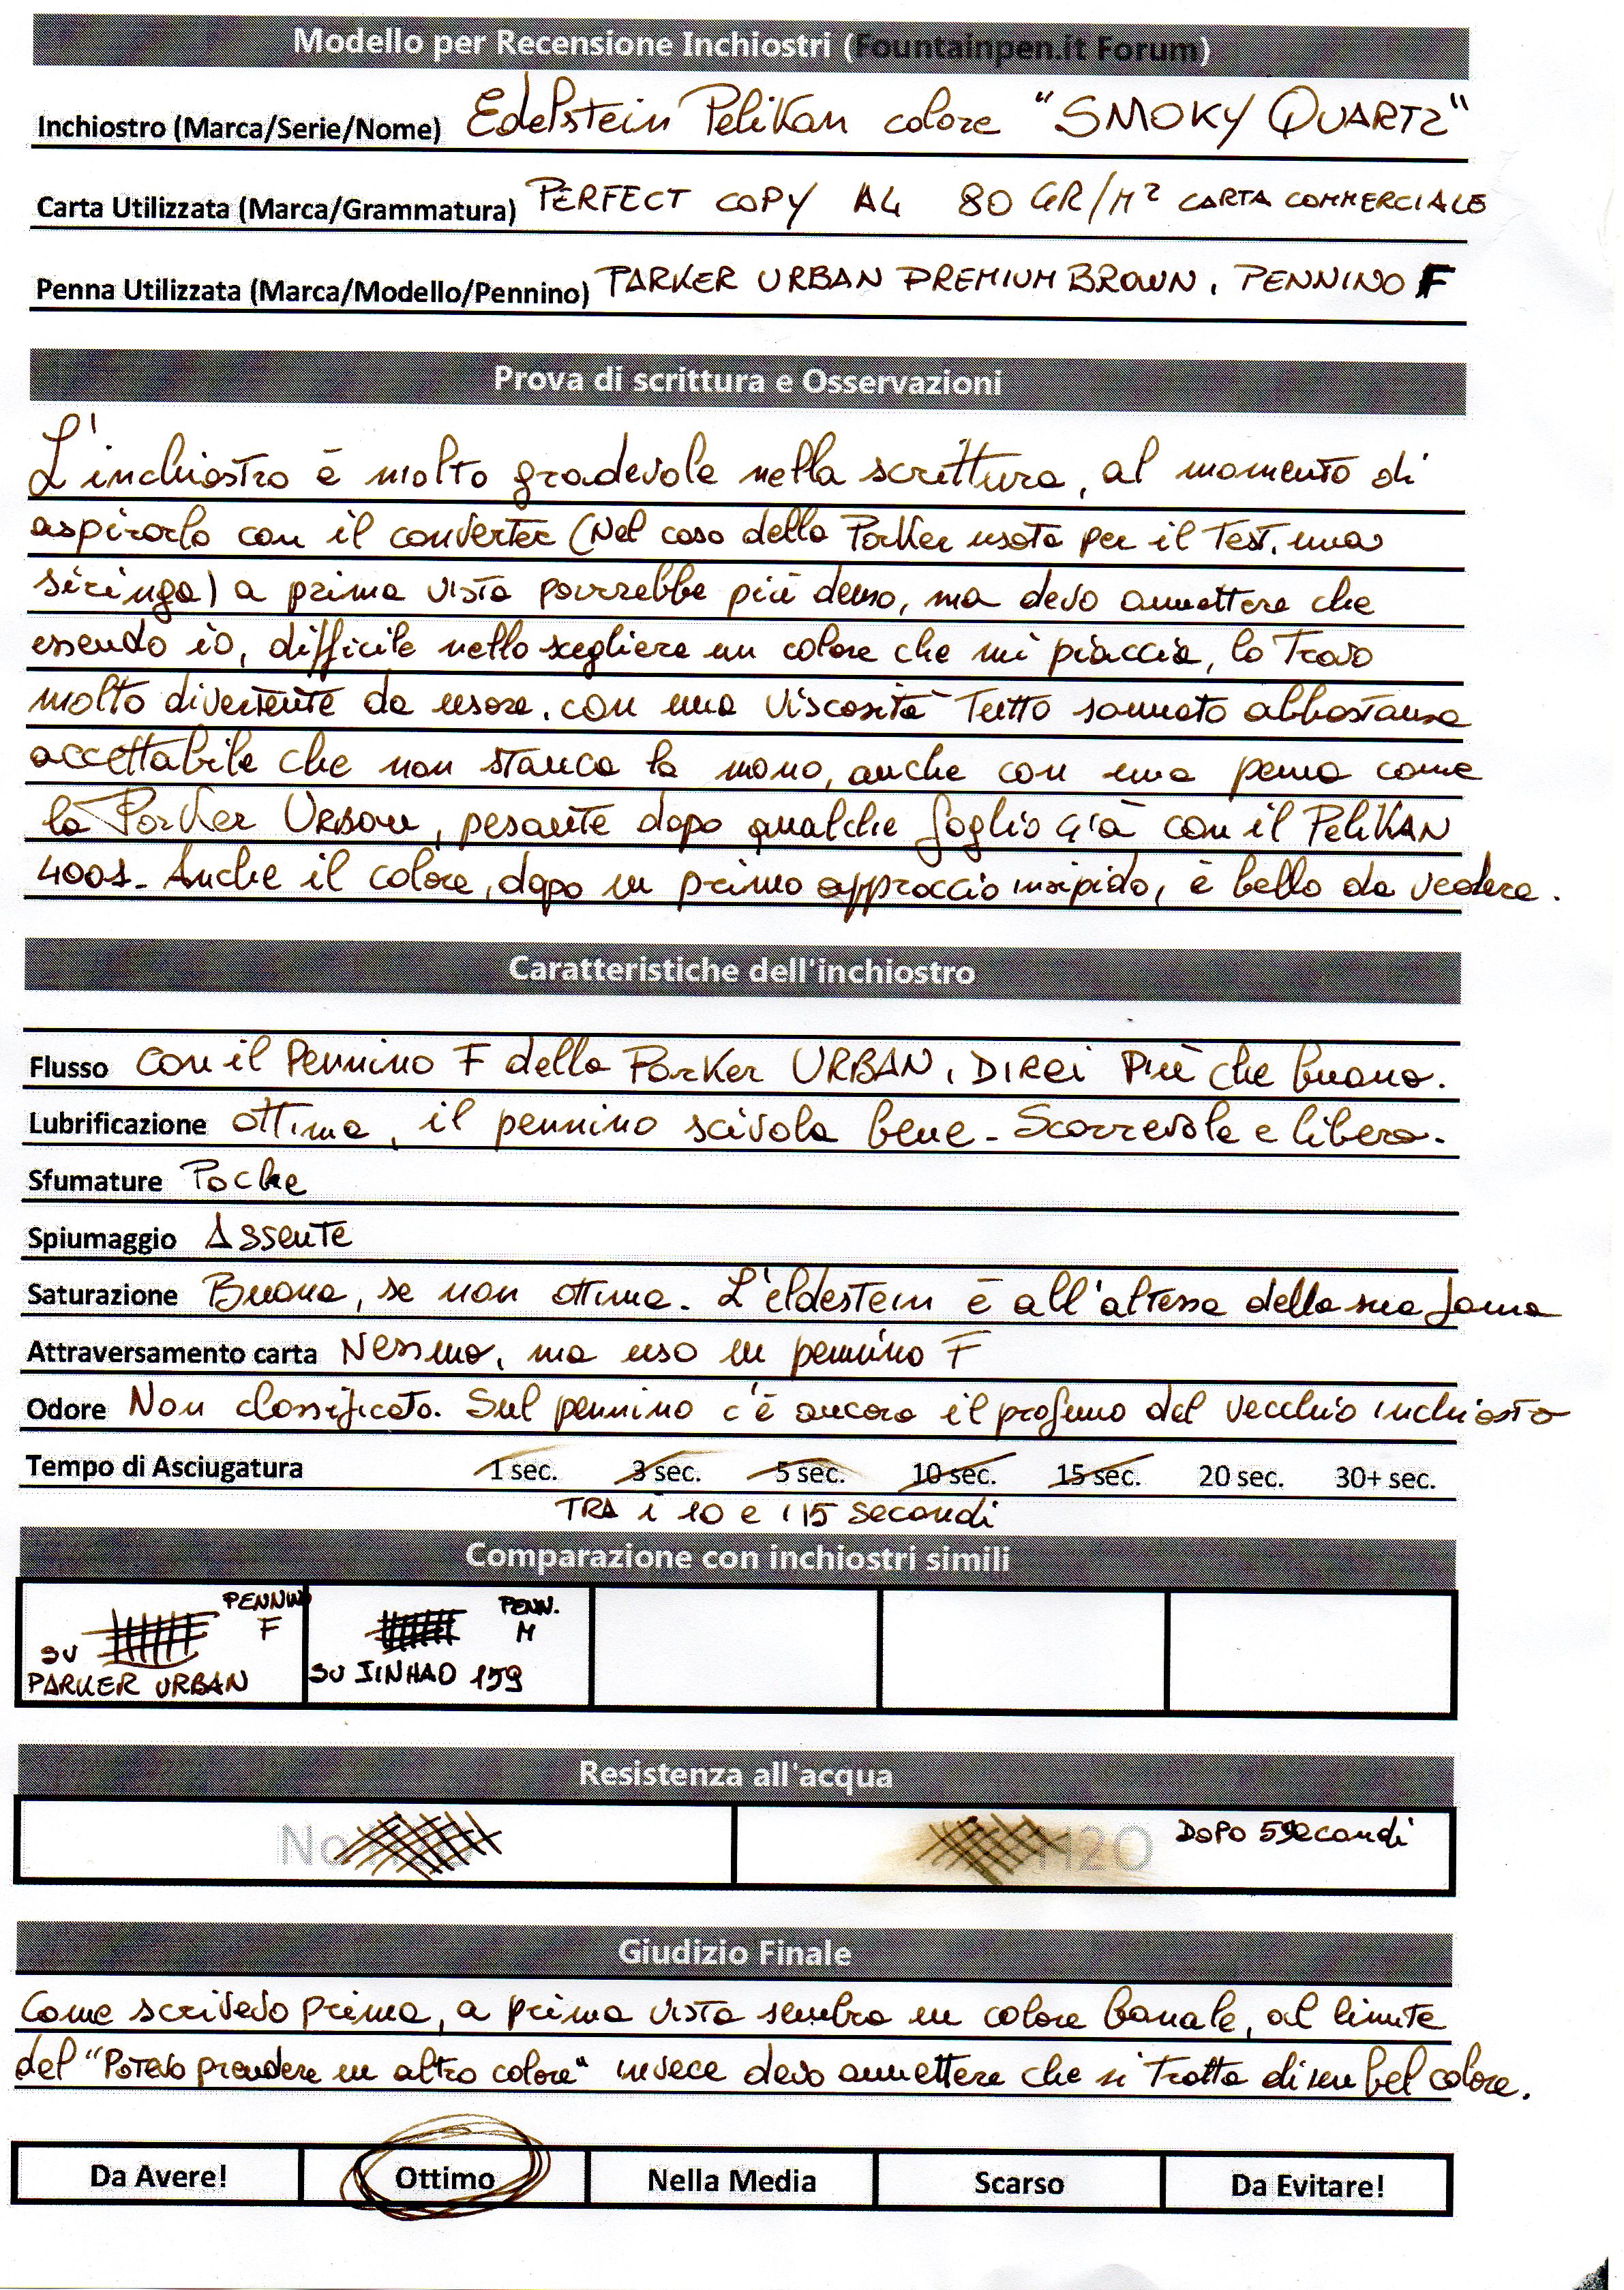 Modello per Recensione Inchiostri (Fountainpen.it Forum)
Inchiostro (Marca/Serie/Nome) Edelstein Pelikan colore "SMOKY QUARTZ"
Carta Utilizzata (Marca/Grammatura) PERFECT COPY A4 80 GR/M² CARTA COMMERCIALE
Penna Utilizzata (Marca/Modello/Pennino) PARKER URBAN PREMIUM BROWN, PENNINO F
Prova di scrittura e Osservazioni
L'inchiostro è molto gradevole nella scrittura, al momento di
aspirarlo con il converter (Nel caso della Parker usata per il Test, una
siringa) a prima vista potrebbe più denso, ma devo ammettere che
essendo io, difficile nello scegliere un colore che mi piaccia, lo Trovo
molto divertente da usare, con una viscosità Tutto sommato abbastanza
accettabile che non stanca la mano, anche con una penna come
la Parker Urban, pesante dopo qualche foglio già con il PeliKAN
4001. Anche il colore, dopo un primo approccio insipido, è bello da vedere.
Caratteristiche dell'inchiostro
Flusso con il Pennino F della Parker URBAN, DIREi Più che buono.
Lubrificazione ottima, il pennino scivola bene - Scorrevole e libero.
Sfumature Poche
Spiumaggio Assente
Saturazione Buona, se non ottima. L'eldestein è all'altezza della sua fama
Attraversamento carta Nessuno, ma uso un pennino F
Odore Non classificato. Sul pennino c'è ancora il profumo del vecchio inchiosto
Tempo di Asciugatura 1 sec. 3 sec. 5 sec. 10 sec. 15 sec. 20 sec. 30+ sec.
TRA i 10 e i 15 secondi
Comparazione con inchiostri simili
PENNINO F SU PARKER URBAN
PENN. M SU JINHAO 159
Resistenza all'acqua
No H2O
H2O DOPO 5 secondi
Giudizio Finale
Come scrivevo prima, a prima vista sembra un colore banale, al limite
del "Potevo prendere un altro colore" invece devo ammettere che si Tratta di un bel colore.
Da Avere! Ottimo Nella Media Scarso Da Evitare!